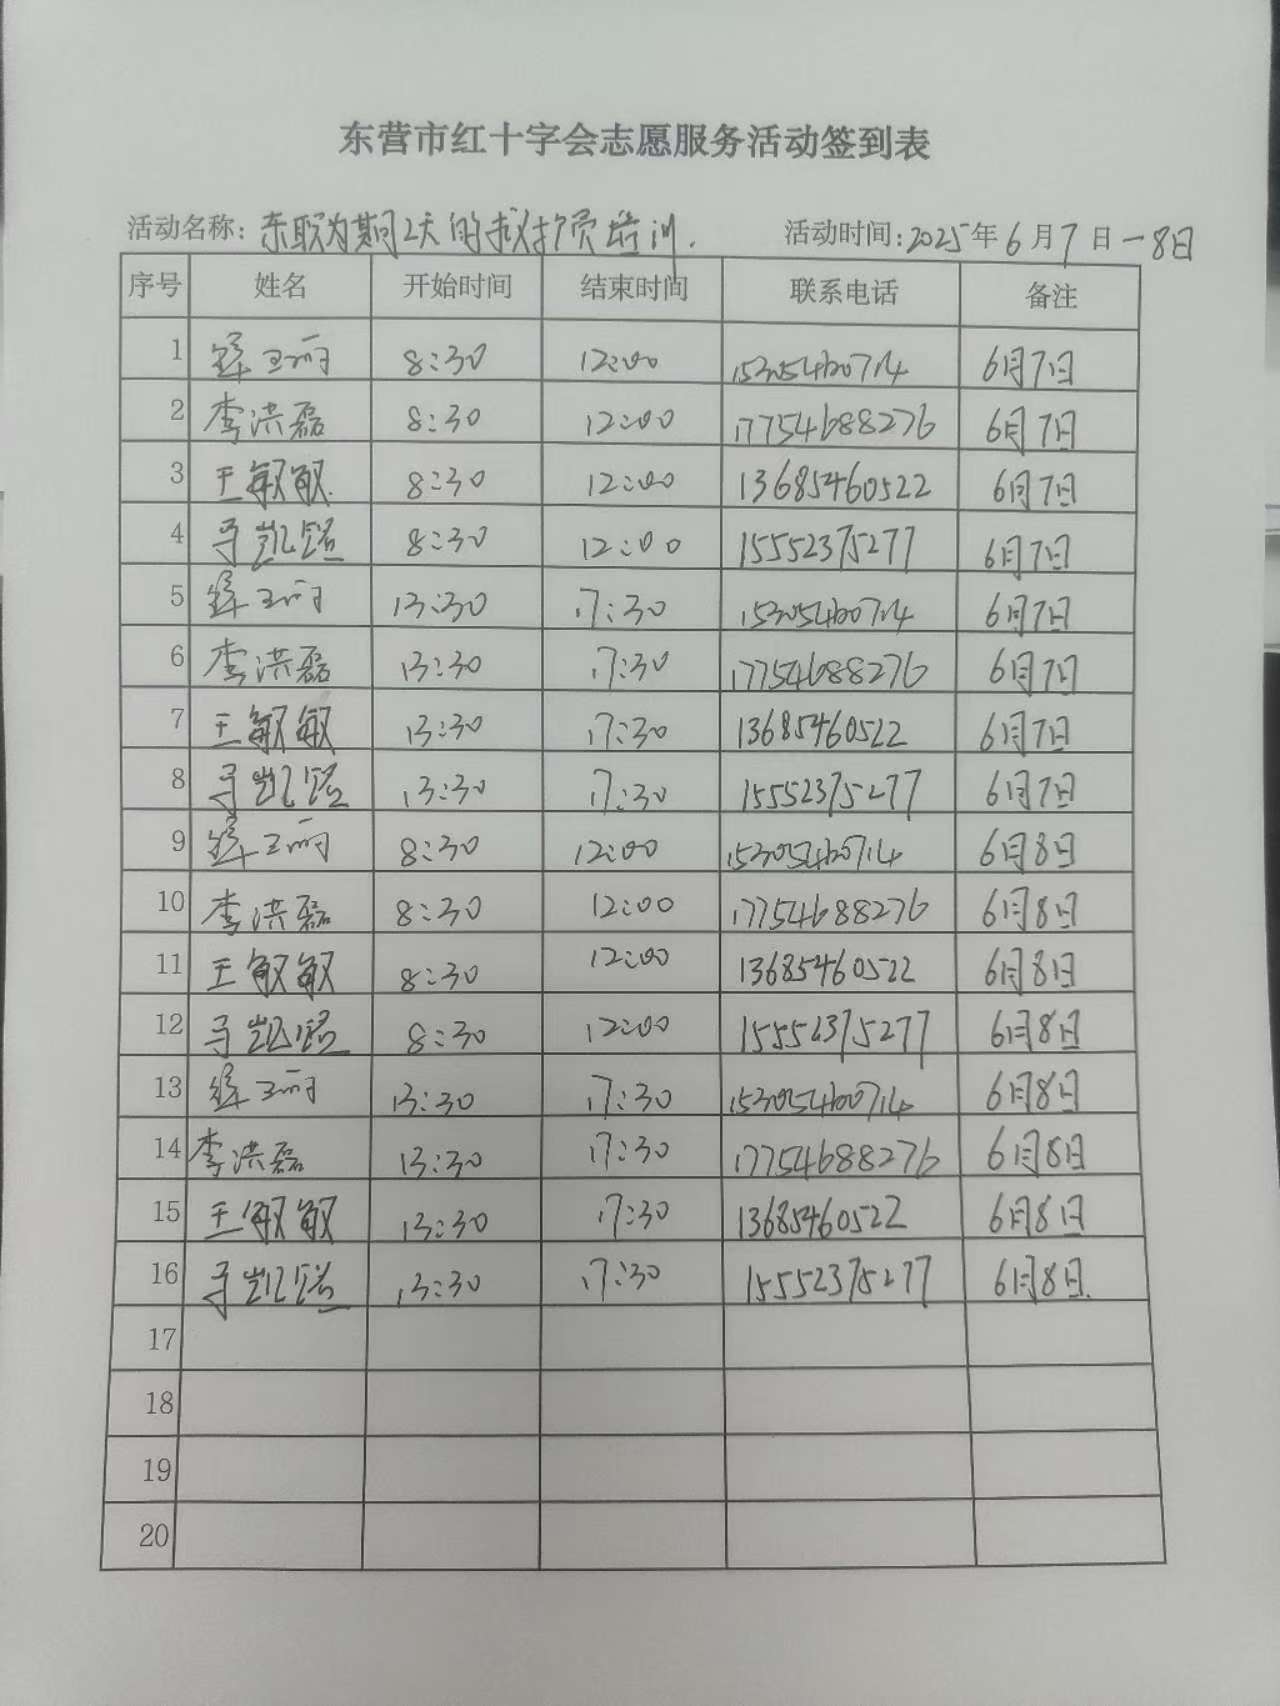 东营市红十字会志愿服务活动签到表
活动名称：东职为期2天的救护员培训. 活动时间:2025年6月7日-8日
序号 姓名 开始时间 结束时间 联系电话 备注
1 8:30 12:00 15305460714 6月7日
2 李洪磊 8:30 12:00 17754688276 6月7日
3 王敏敏. 8:30 12:00 13685460522 6月7日
4 8:30 12:00 15552375277 6月7日
5 13:30 17:30 15305460714 6月7日
6 李洪磊 13:30 17:30 17754688276 6月7日
7 王敏敏 13:30 17:30 13685460522 6月7日
8 13:30 17:30 15552375277 6月7日
9 8:30 12:00 15305460714 6月8日
10 李洪磊 8:30 12:00 17754688276 6月8日
11 王敏敏 8:30 12:00 13685460522 6月8日
12 8:30 12:00 15552375277 6月8日
13 13:30 17:30 15305460714 6月8日
14 李洪磊 13:30 17:30 17754688276 6月8日
15 王敏敏 13:30 17:30 13685460522 6月8日
16 13:30 17:30 15552375277 6月8日.
17
18
19
20